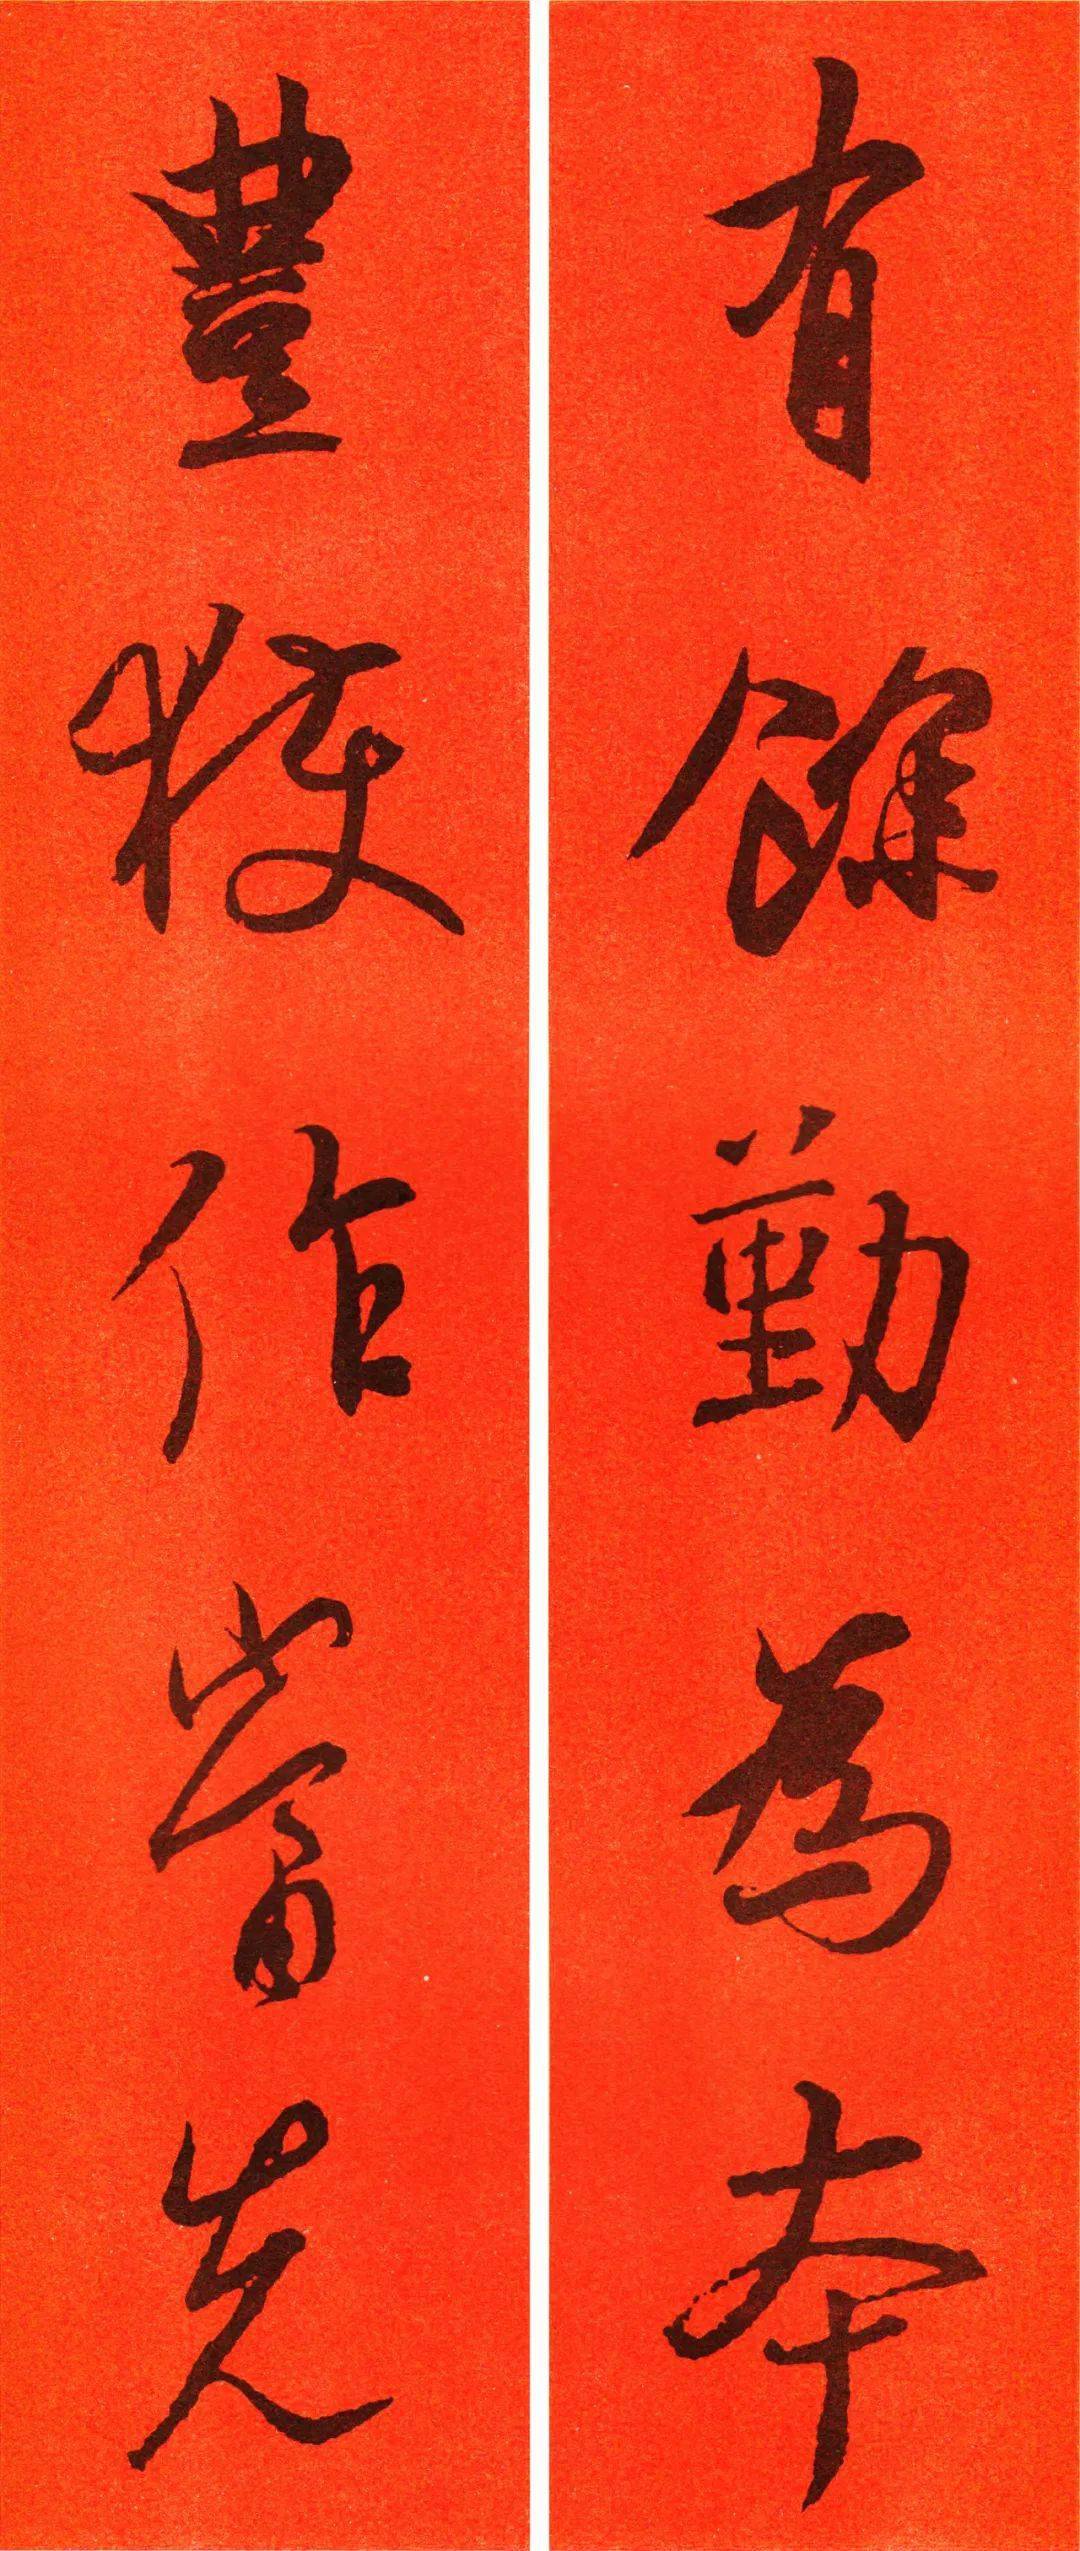 有餘勤為本
豐穫作當先